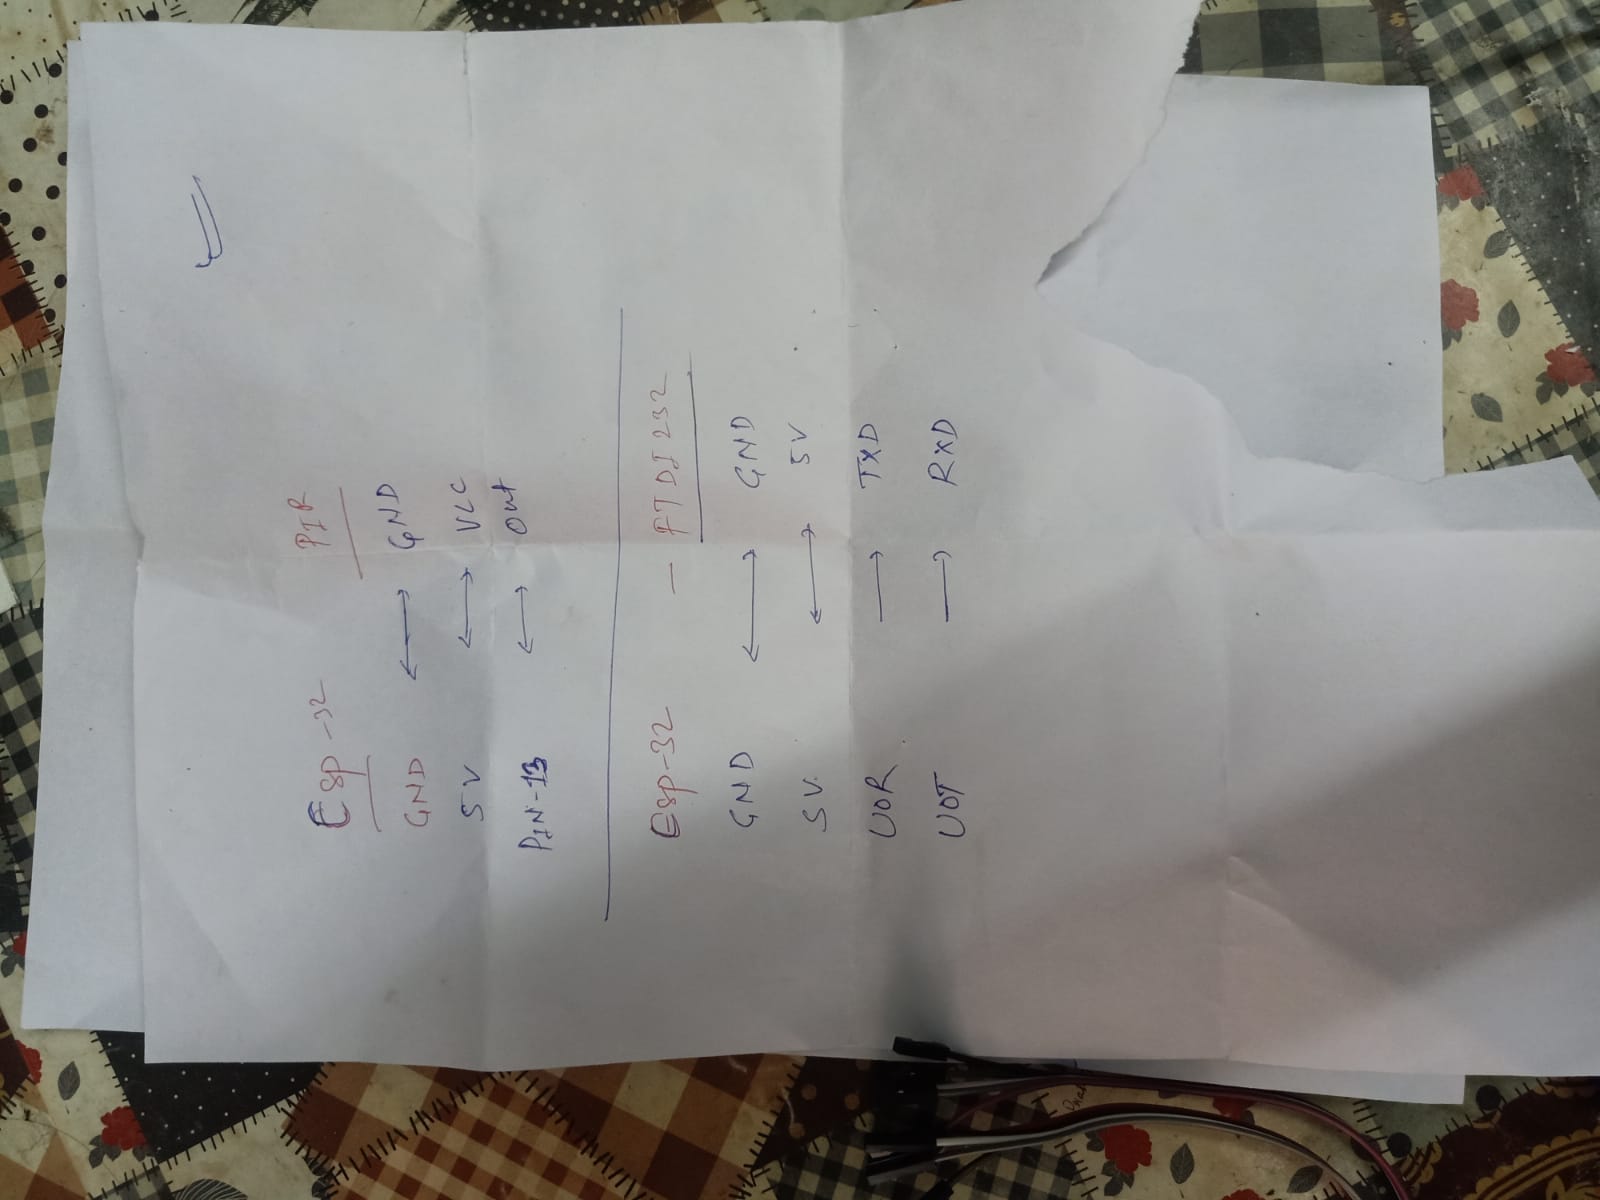 Esp-32 PIR
GND ↔ GND
5V ↔ VCC
PIN-13 ↔ Out
Esp-32 – FTDI232
GND ↔ GND
5V ↔ 5V
UOR → TXD
UOT → RXD